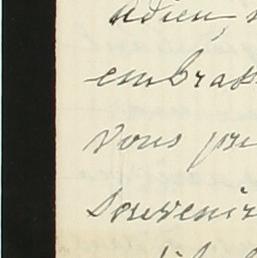 adieu,
embras
vous pr
souvenir